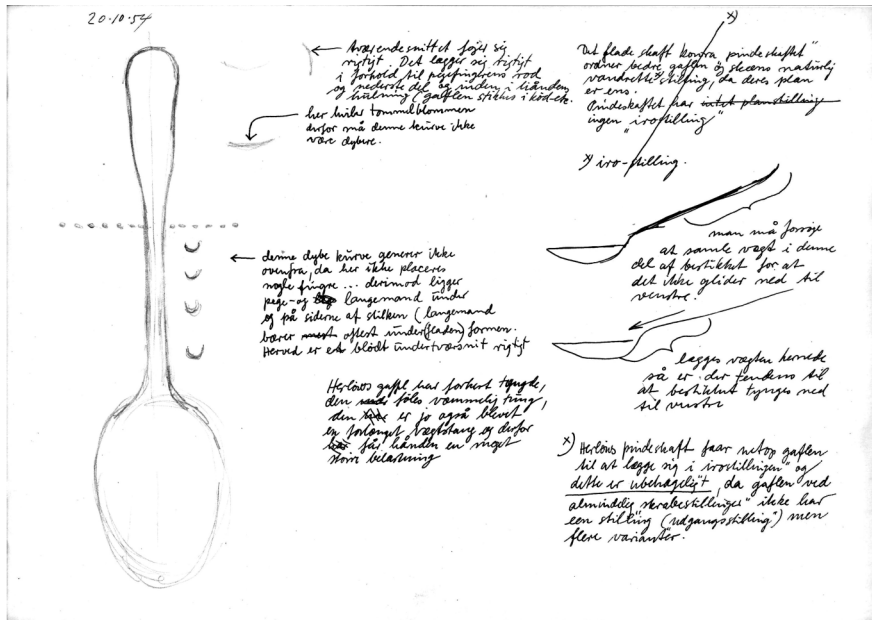 20·10·54
Tværendesnittet føjer sig
rigtigt. Det lægger sig rigtigt
i forhold til pegefingrens rod
og nederste del og inden i hånden
hulning (gaflen stikkes i kød etc.
her hviler tommelblommen
derfor må denne kurve ikke
være dybere.
denne dybe kurve generer ikke
ovenfra, da her ikke placeres
nogle fingre ... derimod ligger
pege- og langemand under
og på siderne af stilken (langemand
bærer mest oftest under(fladen) formen.
Herved er et blödt undertværsnit rigtigt
Herløws gaffel har forkert tyngde,
den føles væmmelig tung,
den er jo også blevet
en forlænget vægtstang og derfor
får hånden en meget
större belastning
x)
Det flade skaft kontra pindeskaftet"
ordner bedre gaflen og skeens naturlig
vandrette stilling, da deres plan
er ens.
Pindeskaftet har intet planstilling
ingen "irostilling"
x) iro-stilling.
man må forsøge
at samle vægt i denne
del af bestikket for at
det ikke glider ned til
venstre.
lægges vægten hernede
så er der tendens til
at bestikket tynges ned
til venstre
x) Herløws pindeskaft faar netop gaflen
til at lægge sig i irostillingen" og
dette er ubehageligt, da gaflen ved
almindelig skrabestillinger" ikke har
een stilling (udgangsstilling") men
flere varianter.